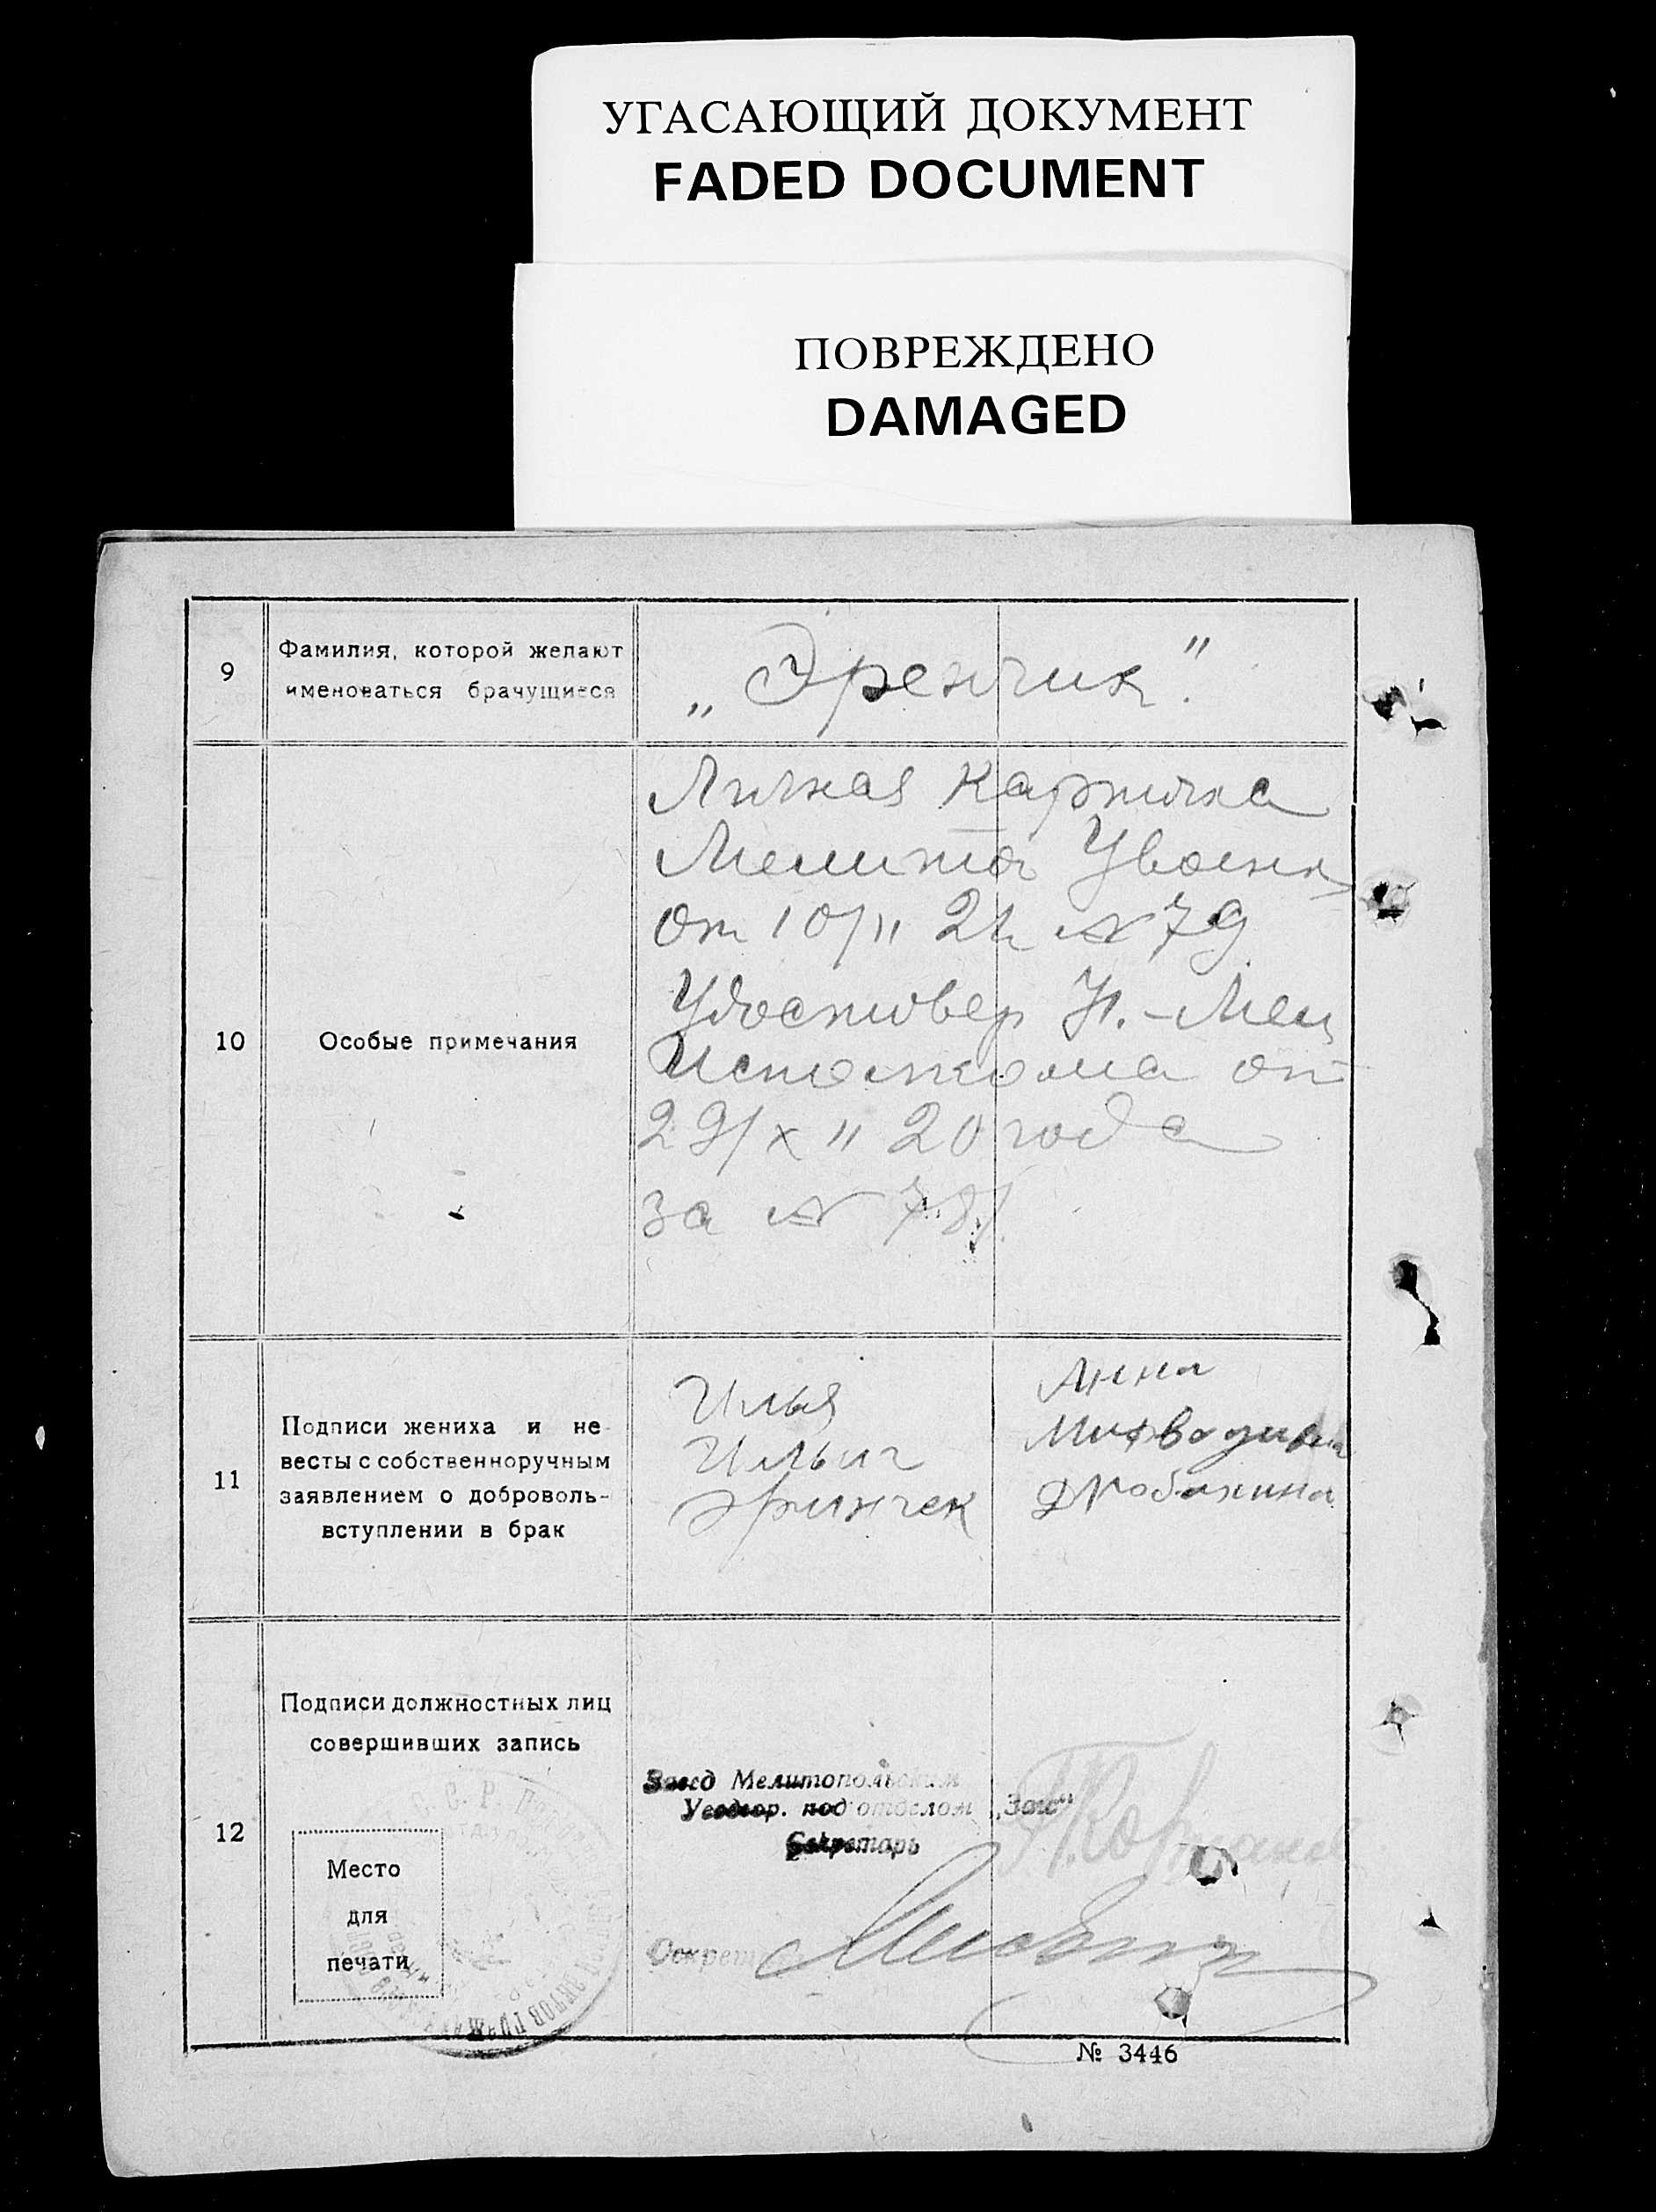 УГАСАЮЩИЙ ДОКУМЕНТ
FADED DOCUMENT
ПОВРЕЖДЕНО
DAMAGED
9
Фамилия, которой желают
именоваться брачущиеся
„Эренчик".
10
Особые примечания
Личная карточка
Мелитоп Увоенк
От 10/II 21 г № 79
Удостовер Н.-Мел
Исполкома от
29/X II 20 года
за № 781.
11
Подписи жениха и не-
весты с собственноручным
заявлением о доброволь-
вступлении в брак
Илья
Ильич
Эринчек
Анна
Дробахина
12
Подписи должностных лиц
совершивших запись
Место
для
печати
Завед Мелитопольским
Уездгор. подотделом „Загс"
Секретарь
Секрет
№ 3446